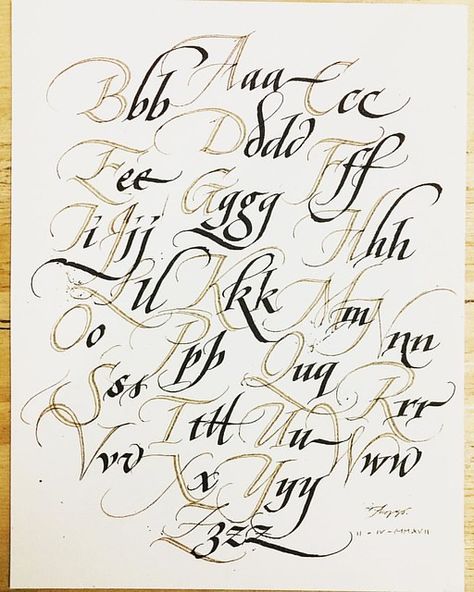 Bbb Aaa Ccc
Dddd
Eee Gggg Fff
Ii Jjj Hhh
Lll Kkk Mm Nnn
Oo Ppp Quq Rrr
Sss Tttt Uu Www
Vvv Xx Yyy
Zzzz
II - IV - MMXVII